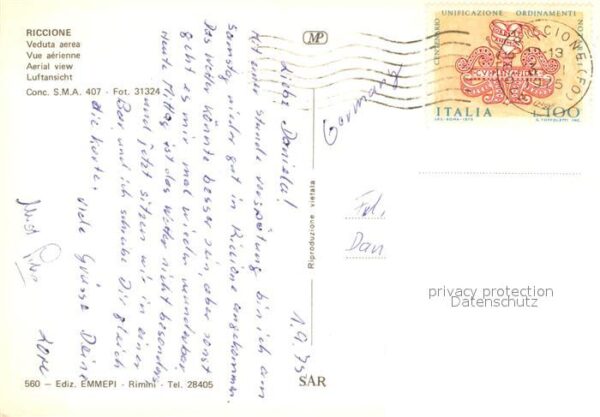 RICCIONE
Veduta aerea
Vue aérienne
Aerial view
Luftansicht
Conc. S.M.A. 407 - Fot. 31324
MP
CENTENARIO UNIFICAZIONE ORDINAMENTI
ITALIA L.100
1.9.75
Liebe Daniela!
Mit einer Stunde verspätung bin ich am
Samstag wieder gut in Riccione angekommen.
Das Wetter könnte besser sein, aber sonst
geht es mir mal wieder wunderbar.
Heute Mittag ist das Wetter nicht besonders
und jetzt sitzen wir in einer
Bar und ich schreibe Dir gleich
die Karte. viele Grüsse Deine
Germany
Frl.
Dan
Riproduzione vietata
privacy protection
Datenschutz
560 - Ediz. EMMEPI - Rimini - Tel. 28405
SAR